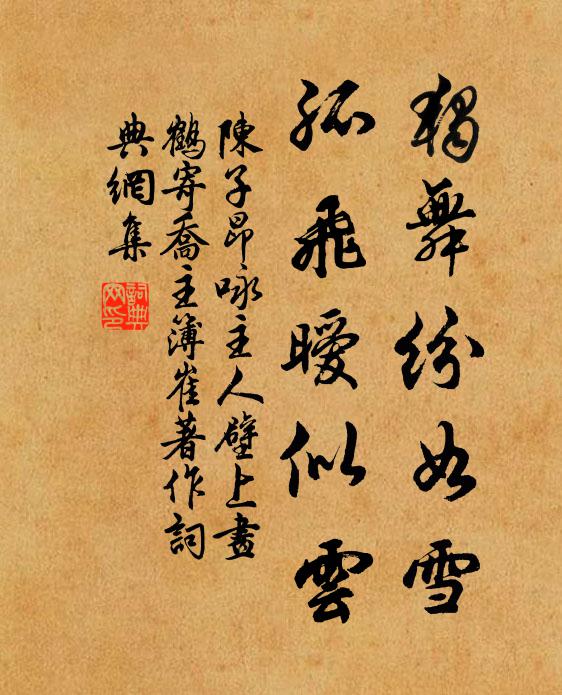 獨舞紛如雪
孤飛曖似雲
陳子昂詠主人壁上畫
鶴寄喬主簿崔著作詞
典網集
詞典網印